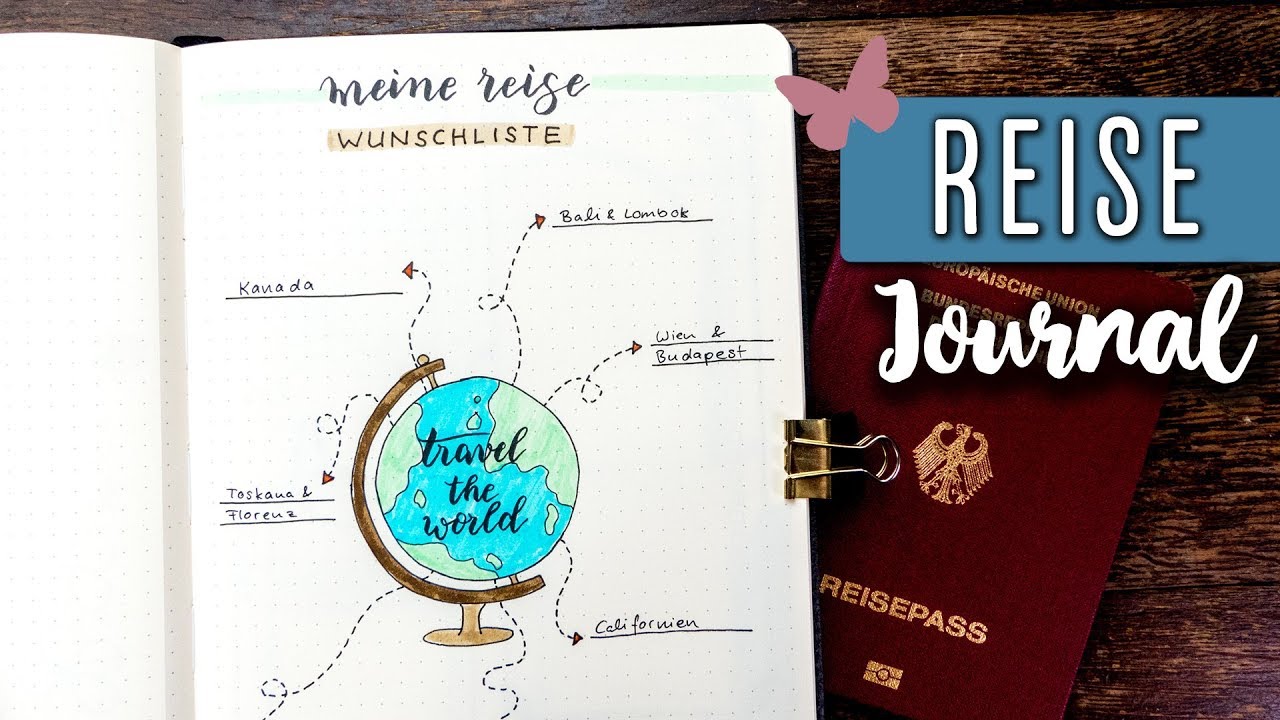 meine reise
WUNSCHLISTE
Bali & Lombok
Kanada
Wien &
Budapest
travel
the
world
Toskana &
Florenz
Californien
REISE
Journal
EUROPÄISCHE UNION
REISEPASS